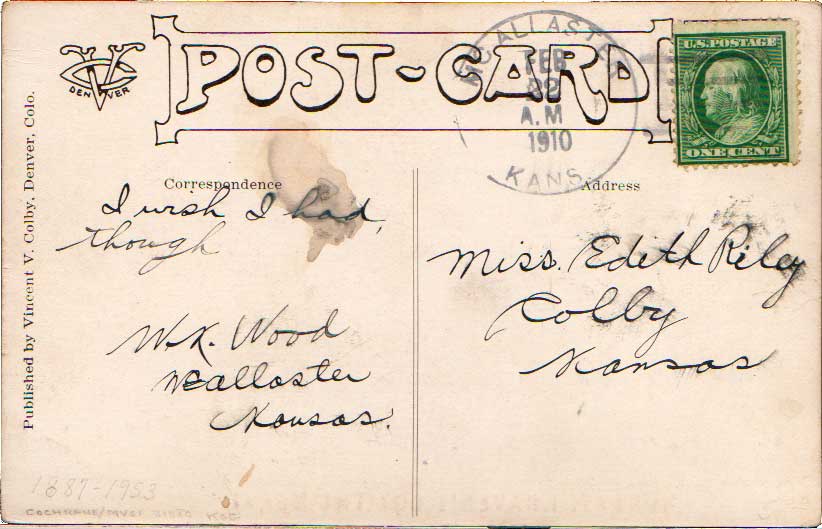 DENVER
POST-CARD
MC ALLASTER
FEB
22
A.M
1910
KANS.
U.S. POSTAGE
ONE CENT
Published by Vincent V. Colby, Denver, Colo.
Correspondence
I wish I had,
though
W.K. Wood
McAllaster
Kansas.
Address
Miss. Edith Riley
Colby
Kansas
1687-1953